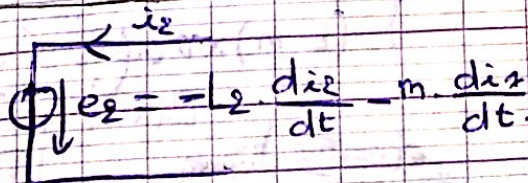 i₂
e₂ = -L₂. di₂/dt - m. di₁/dt.